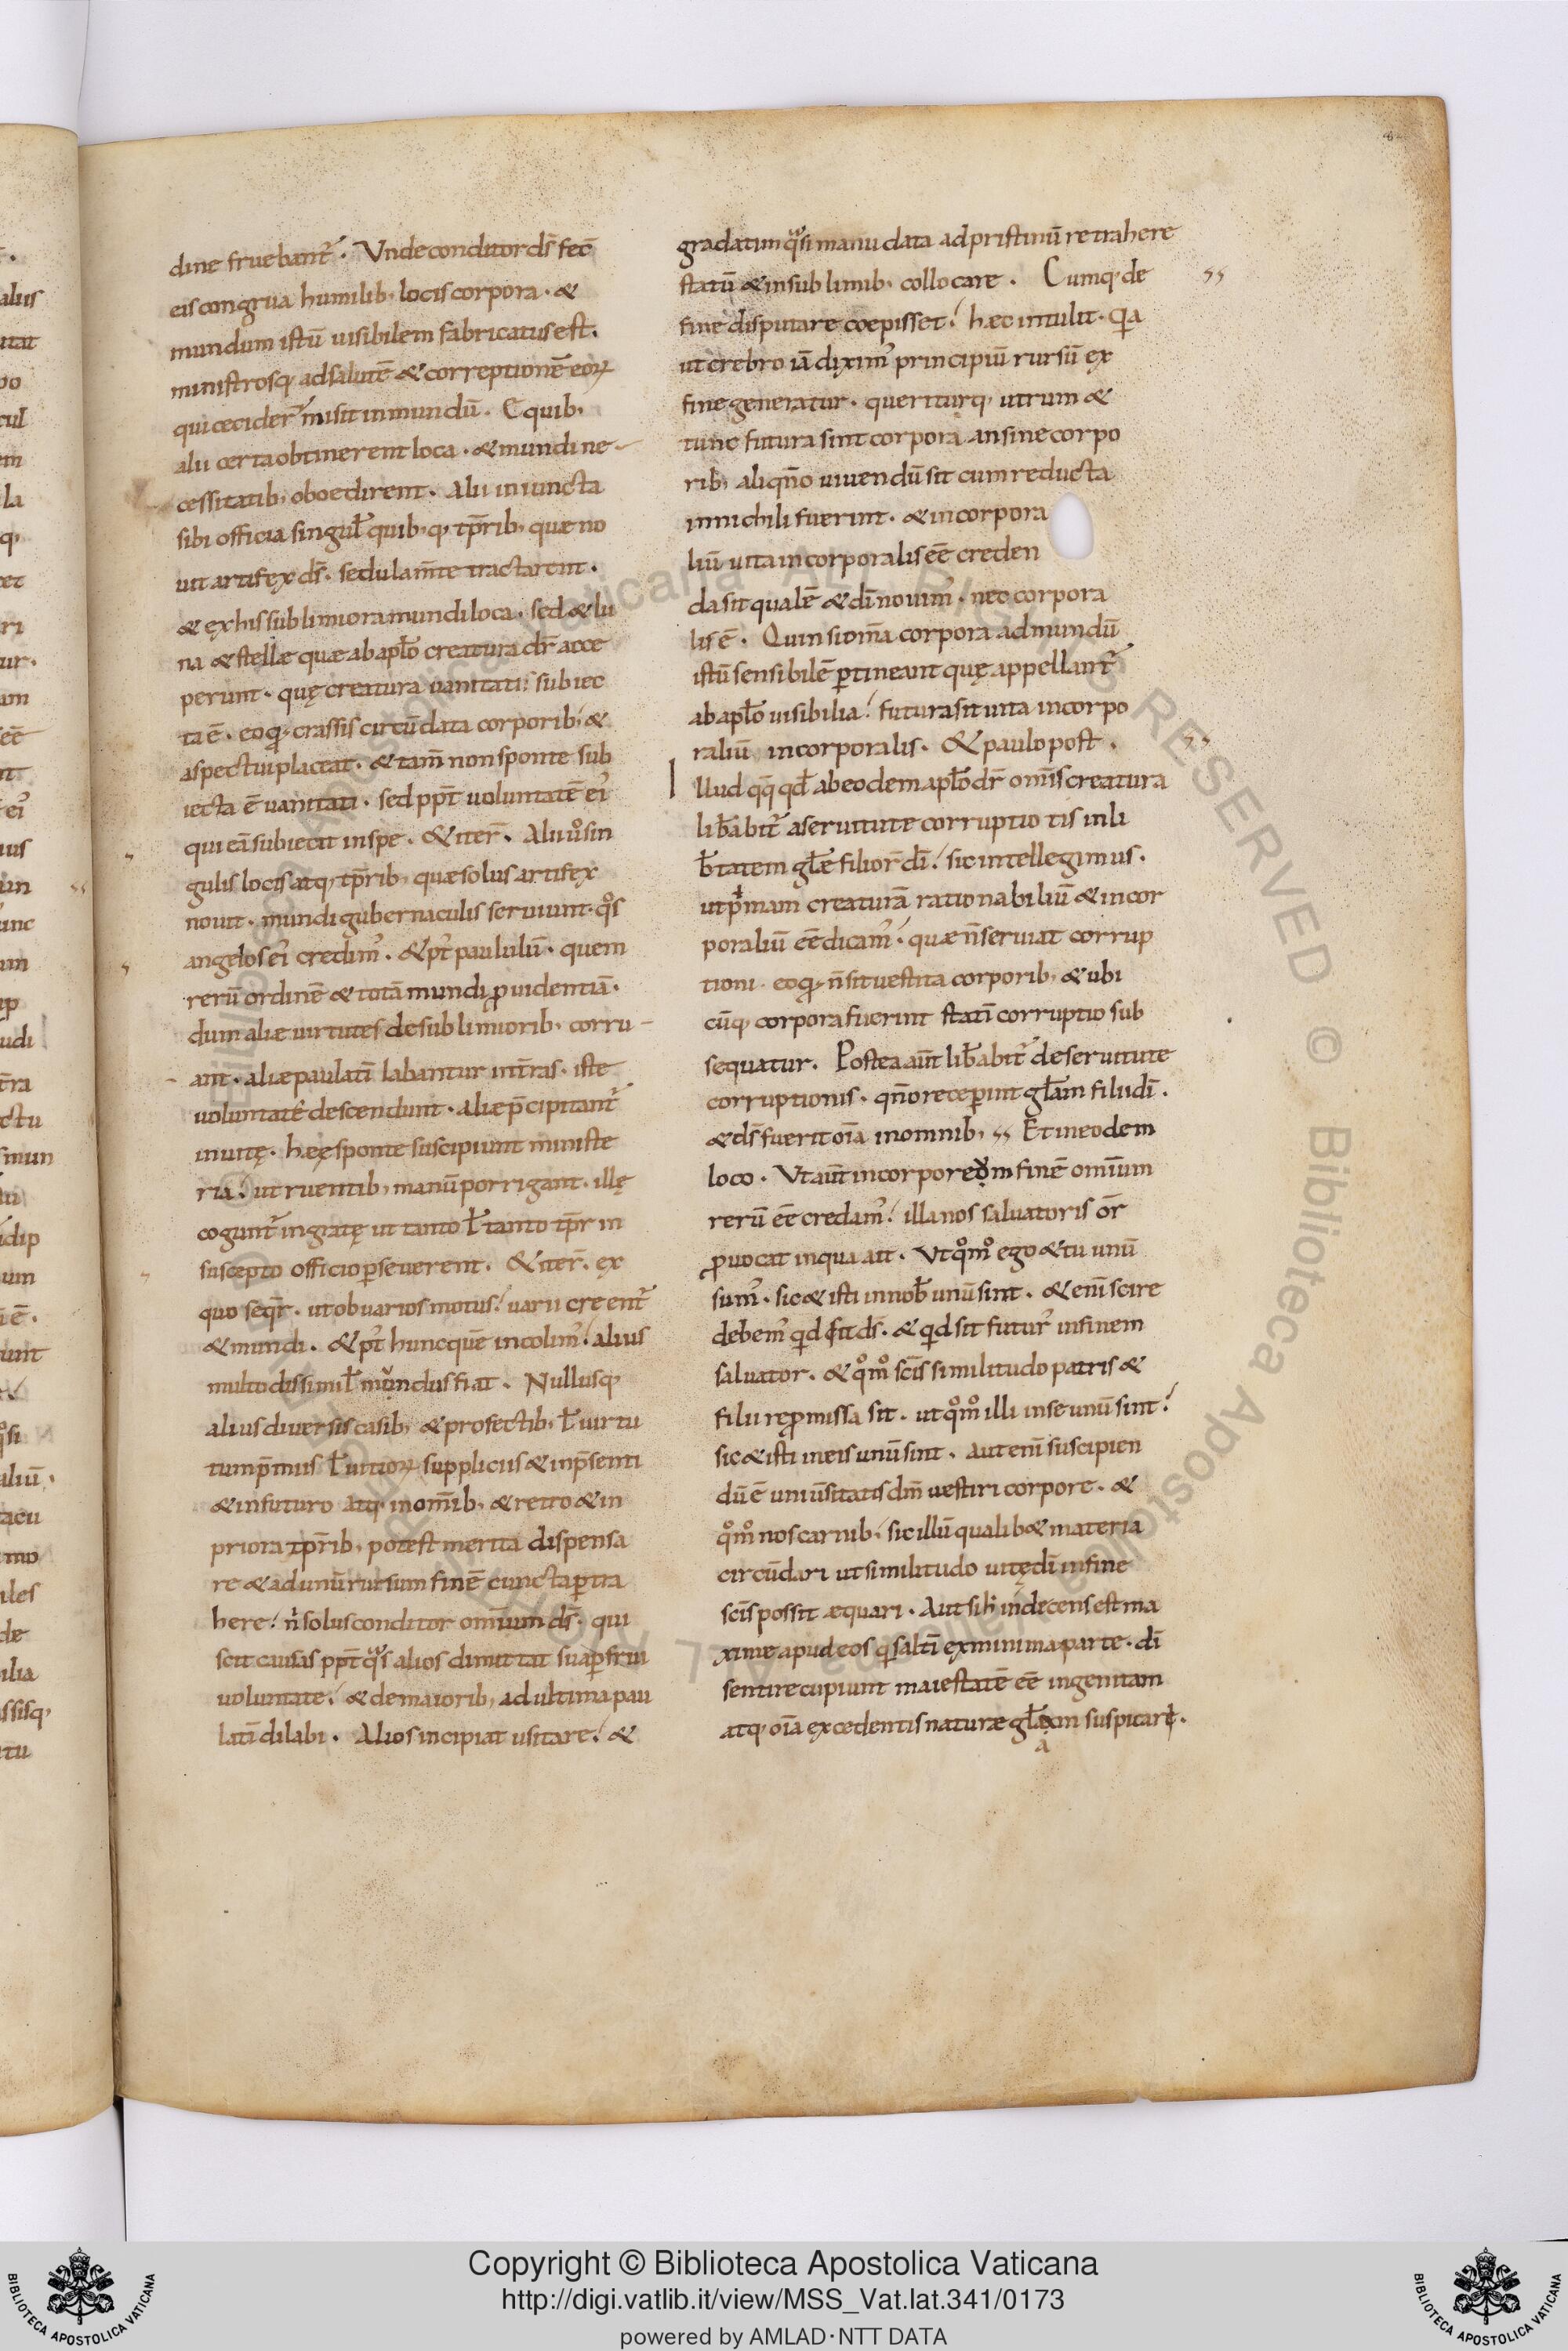 dine fruebant᷑. Vnde conditor ds̄ fec̄
eis congrua humilib; locis corpora. &
mundum istū uisibilem fabricatus est.
ministrosq; ad salutē & correptionē eoꝝ
qui cecider᷑ misit in mundū. E quib;
alii certa obtinerent loca. & mundi ne-
cessitatib; oboedirent. Alii iniuncta
sibi officia singul̄ quib; q; tp̄rib; quæ no
uit artifex ds̄. sedula m̄te tractarent.
& ex his sublimiora mundi loca. sed & lu
na & stellæ quæ ab apl̄o creatura dr̄ acce
perunt. quę creatura uanitati subiec
ta ē. eo qd; crassis circūdata corporib; &
aspectui placeat. & tam̄ non sponte sub
iecta ē uanitati. sed ppt̄ uoluntatē ei᷒
qui eā subiecit in spe. & iter̄. Alii uͦ sin
gulis locis atq; tp̄rib; quæ solus artifex
nouit. mundi gubernaculis seruiunt. qͦs
angelos ei᷒ credim᷒. & pt᷒ paululū. quem
rerū ordinē & totā mundi ꝓuidentiā.
dum aliæ uirtutes de sublimiorib; corru-
ant. aliæ paulatī labantur in tr̄as. istę
uoluntatē descendunt. aliæ p̄cipitant᷑
inuitę. hęę sponte suscipiunt ministe
ria. ut ruentib; manū porrigant. illę
cogunt᷑ ingratę ut tanto ł tanto tp̄r in
suscepto officio ꝑseuerent. & iter̄. ex
quo seqr̄. ut ob uarios motus. uarii creent᷑
& mundi. & pt᷒ hunc quē incolim᷒. alius
multo dissimil̄ mundus fiat. Nullusq;
alius diuersis casib; & profectib; ł uirtu
tum p̄miis ł uitioꝝ suppliciis & in p̄senti
& in futuro atq; in om̄ib; & retro & in
priora tp̄rib; potest merita dispensa
re & ad unū rursum finē cuncta ꝑtra
here. n̄ solus conditor omīum ds̄. qui
scit causas ppt̄ qͣs alios dimittat sua ꝑfrui
uoluntate. & de maiorib; ad ultima pau
latī dilabi. Alios incipiat uisitare. &
gradatim qͣsi manu data ad pristinū retrahere
statū & in sublimib; collocare. Cumq; de
fine disputare coepisset. hæc intulit. qia
ut crebro iā dixim᷒ principiū rursū ex
fine generatur. queriturq; utrum &
tunc futura sint corpora. an sine corpo
rib; aliqn̄o uiuendū sit cum reducta
in nichili fuerint. & incorpora
liū uita incorporalis eē creden
da sit qualē & dī nouim᷒. nec corpora
lis ē. Quin si om̄a corpora ad mundū
istū sensibilē ꝑtineant quę appellant᷑
ab apl̄o uisibilia. futura sit uita incorpo
raliū incorporalis. & paulo post.
Illud qq̄ qd̄ ab eodem apl̄o dr̄ om̄is creatura
lib̄abit᷑ a seruitute corruptiotis in li
b̄tatem gl̄e filior̄ dī. sic intellegimus.
ut pⁱmam creaturā rationabiliū & incor
poraliū eē dicam᷒. quæ n̄ seruiat corrup
tioni. eo qd; n̄ sit uestita corporib; & ubi
cūq; corpora fuerint statī corruptio sub
sequatur. Postea aut̄ lib̄abit᷑ de seruitute
corruptionis. qn̄o receꝑint gl̄am filii dī.
& ds̄ fuerit oīa in omnib; ⸗ Et in eodem
loco. Vt aut̄ incorporeọm finē omīum
rerū eē credam᷒. illa nos saluatoris or̄
ꝓuocat in qua ait. Vt qͦmͦ ego & tu unū
sum᷒. sic & isti in nob̄ unū sint. & enī scire
debem᷒ qid sit ds̄. & qid sit futur᷒ in finem
saluator. & qͦmͦ scīs similitudo patris &
filii reꝓmissa sit. ut qͦmͦ illi in se unū sint.
sic & isti in eis unū sint. aut enī suscipien
dū ē uniūsitatis dm̄ uestiri corpore. &
qͦmͦ nos carnib; sic illū qualib& materia
circūdari ut similitudo uitę dī in fine
scīs possit æquari. Aut si h̄ indecens est ma
xime apud eos qi saltī ex minima parte. dī
sentire cupiunt maiestatē eē ingenitam
atq; oīa excedentis naturæ gl̄am suspicari.
a
Copyright © Biblioteca Apostolica Vaticana
http://digi.vatlib.it/view/MSS_Vat.lat.341/0173
powered by AMLAD·NTT DATA
BIBLIOTECA APOSTOLICA VATICANA
BIBLIOTECA APOSTOLICA VATICANA